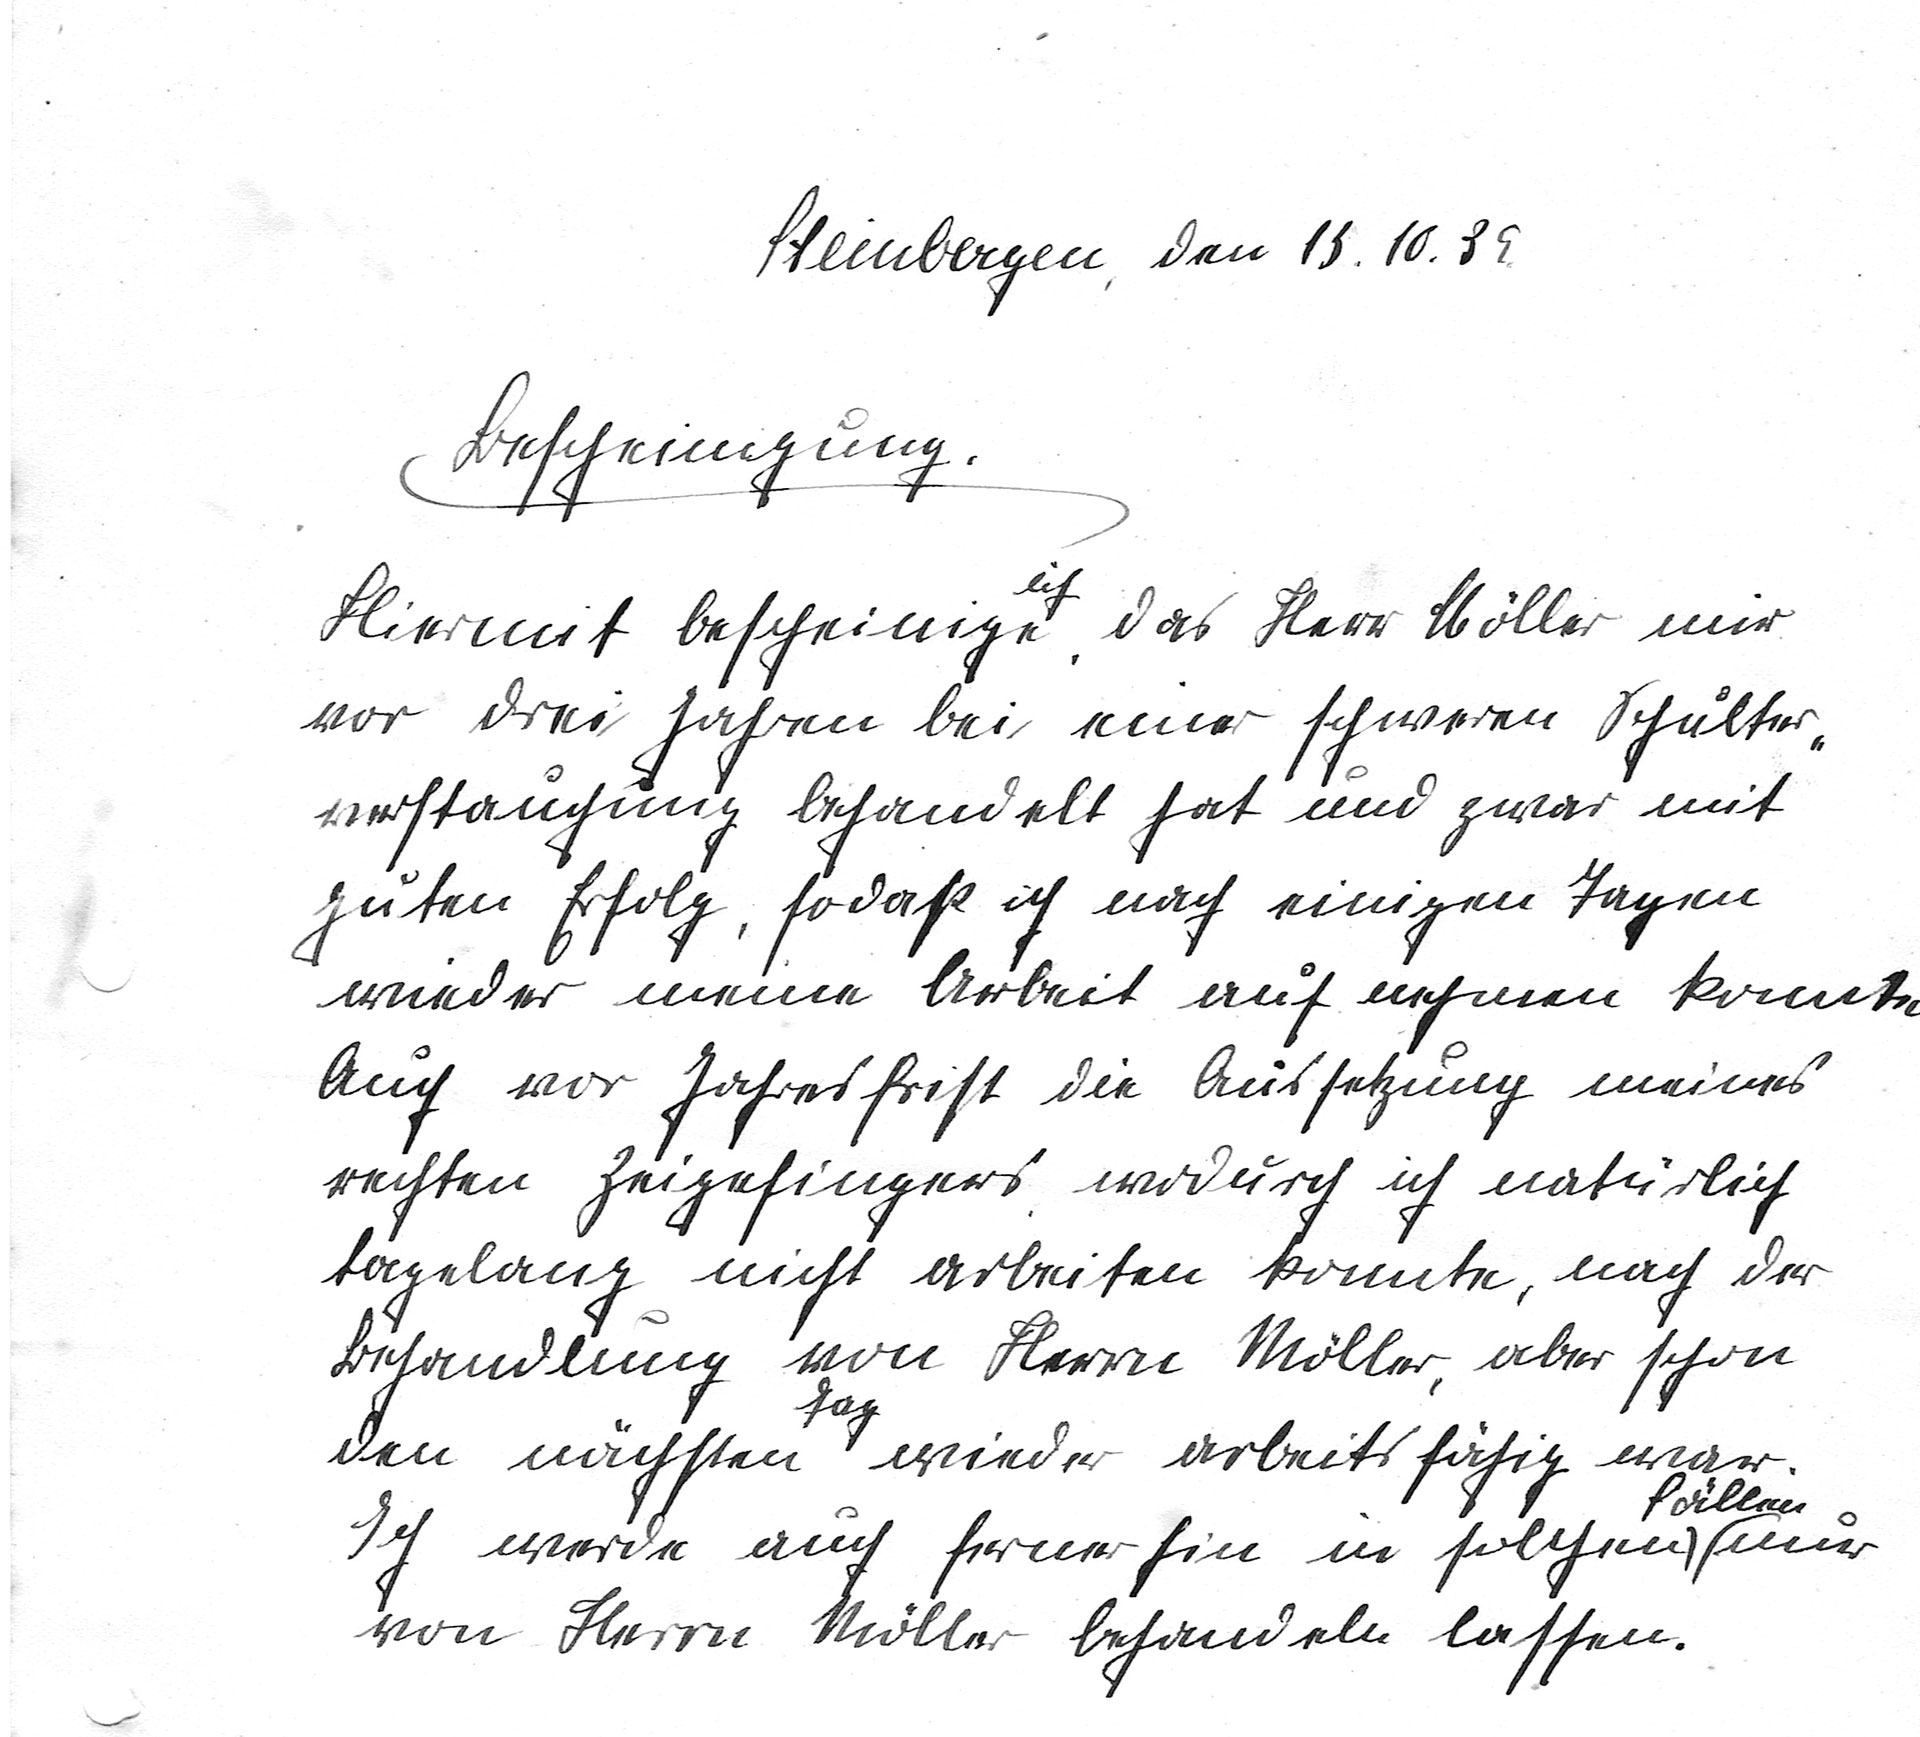 Steinbergen, den 15. 10. 35.
Bescheinigung.
Hiermit bescheinige ich, das Herr Möller mir
vor drei Jahren bei einer schweren Schulter„
verstauchung behandelt hat und zwar mit
guten Erfolg, sodaß ich nach einigen Tagen
wieder meine Arbeit auf nehmen konnte
Auch vor Jahresfrist die Aussetzung meines
rechten Zeigefingers, wodurch ich natürlich
tagelang nicht arbeiten konnte, nach der
Behandlung von Herrn Möller, aber schon
den nächsten Tag wieder arbeitsfähig war.
Ich werde auch fernerhin in solchen Fällen nur
von Herrn Möller behandeln lassen.